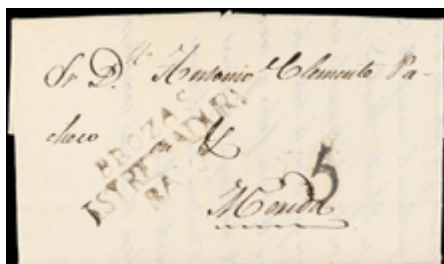 Sr. D.n Antonio Clemente Pa-
checo en
BROZAS
ESTREMADURA
BAXA
5
Merida